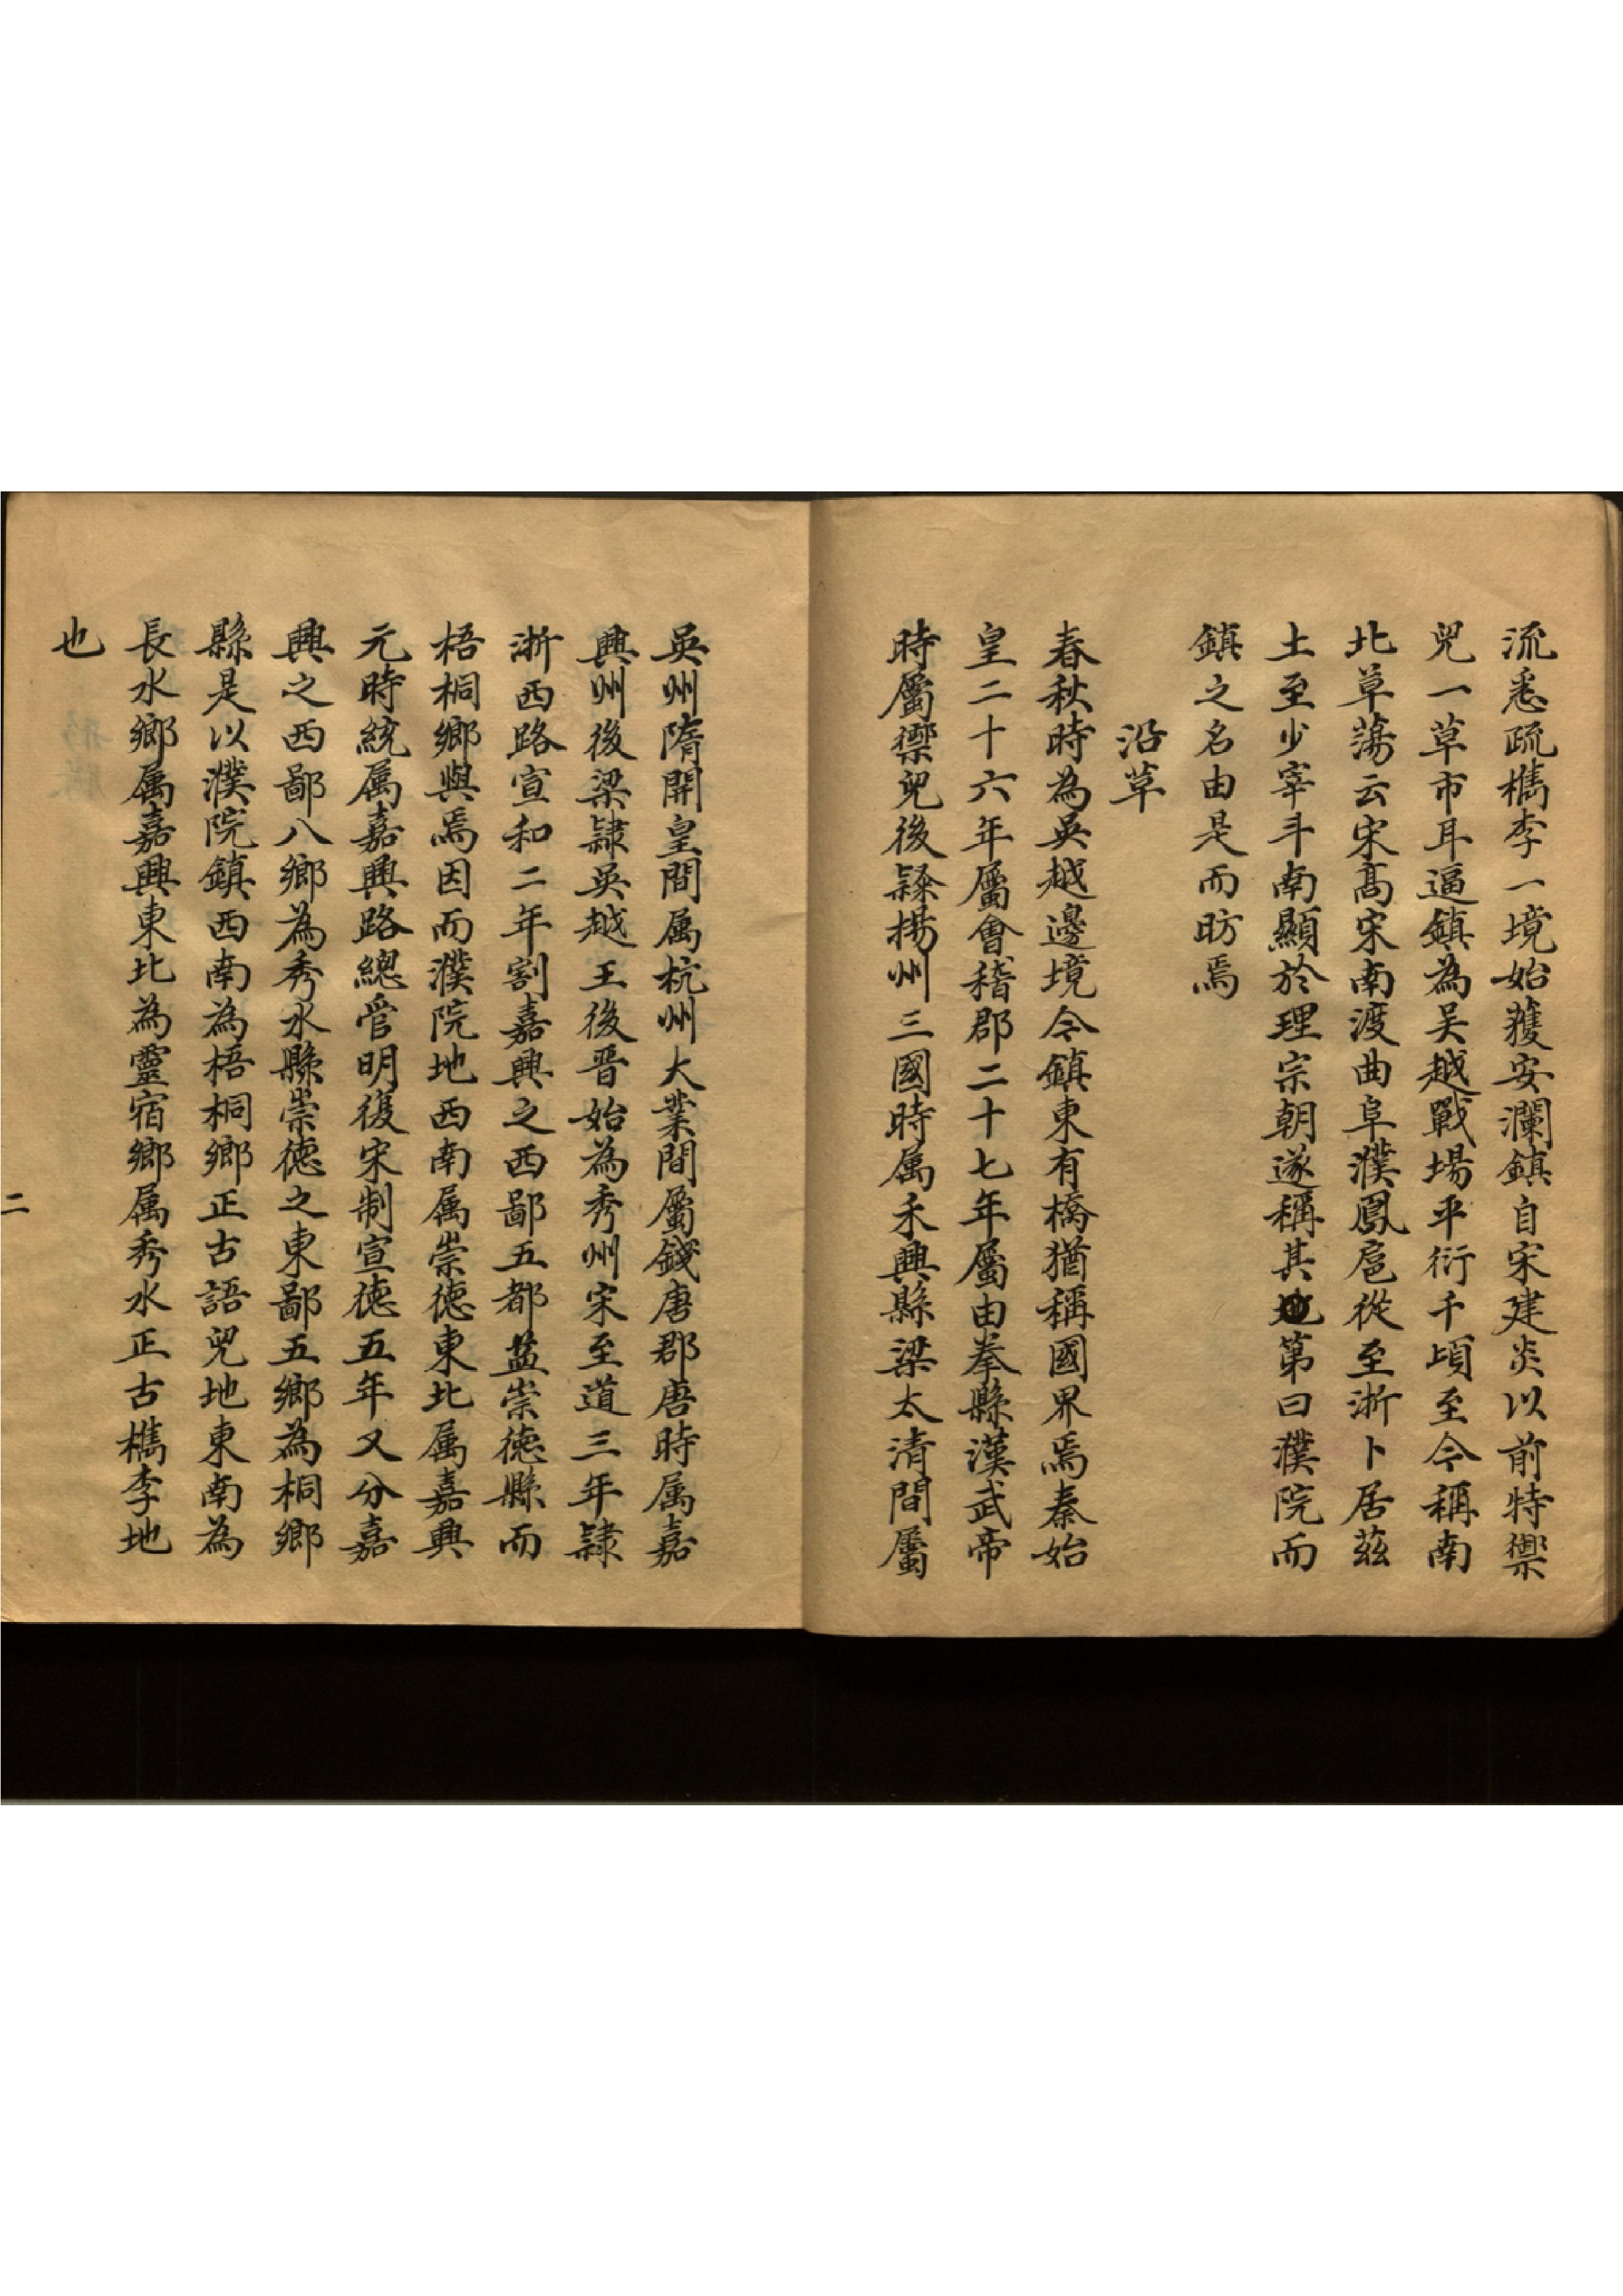 流悉疏檇李一境始獲安瀾鎮自宋建炎以前特禦
兒一草市耳逼鎮為吴越戰場平衍千頃至今稱南
北草蕩云宋髙宋南渡曲阜濮鳳扈從至浙卜居兹
土至少宰斗南顯於理宗朝遂稱其地第曰濮院而
鎮之名由是而昉焉
沿草
春秋時為吳越邊境今鎮東有橋猶稱國界焉秦始
皇二十六年屬會稽郡二十七年屬由拳縣漢武帝
時屬禦兒後隸揚州三國時属禾興縣梁太清間屬
吳州隋開皇間属杭州大業間屬錢唐郡唐時属嘉
興州後梁隸吳越王後晋始為秀州宋至道三年隸
浙西路宣和二年割嘉興之西鄙五都益崇德縣而
梧桐鄉與焉因而濮院地西南属崇德東北属嘉興
元時統属嘉興路總管明復宋制宣徳五年又分嘉
興之西鄙八鄉為秀水縣崇德之東鄙五鄉為桐鄉
縣是以濮院鎮西南為梧桐鄉正古語兒地東南為
長水鄉属嘉興東北為靈宿鄉属秀水正古檇李地
也
二